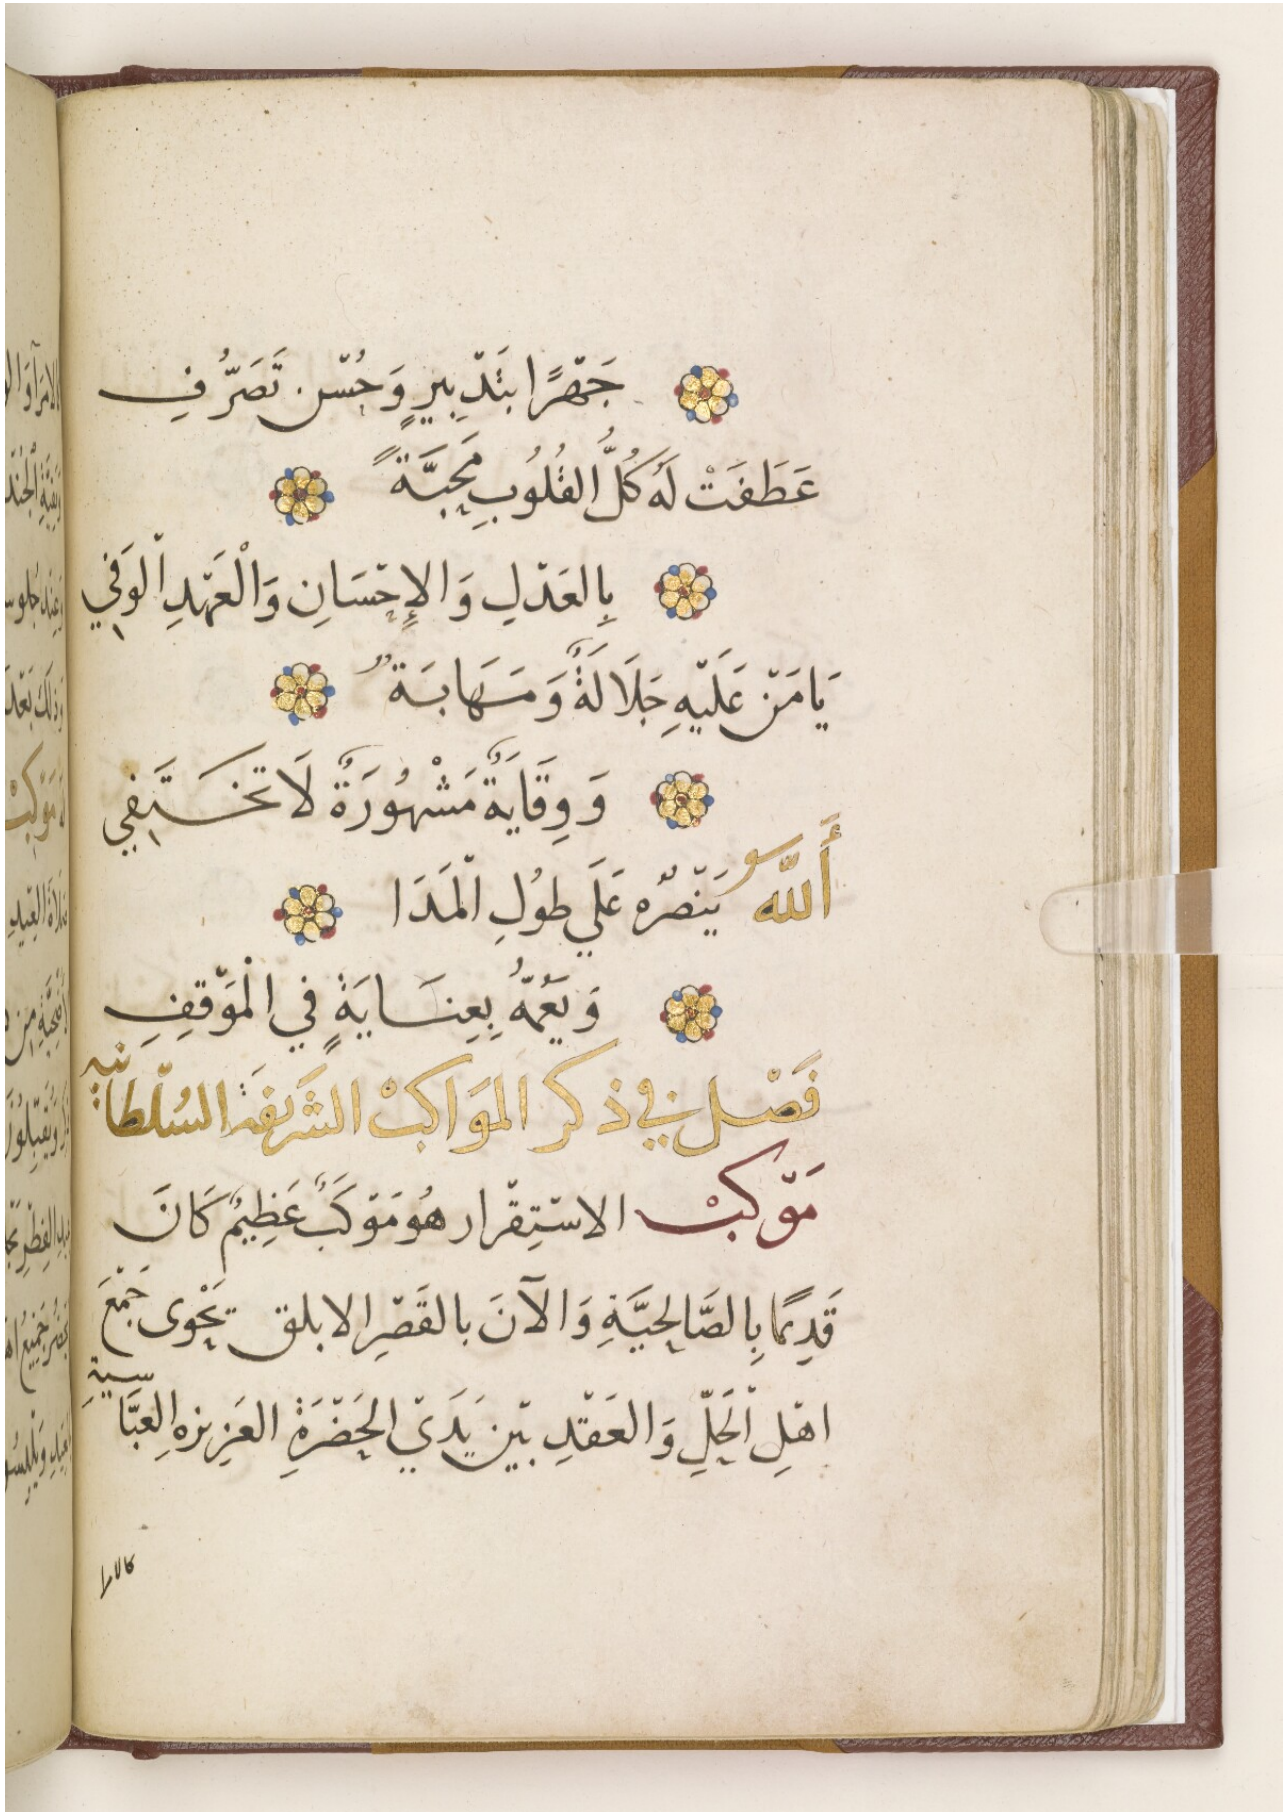 جَهْرًا بتَدْبِيرٍ وَحُسْن تَصَرُّفِ
عَطَفَتْ لَهُ كُلُّ القُلُوبِ مَحَبَّةً
بِالعَدْلِ وَالإِحْسَانِ وَالْعَهْدِ الْوَفِي
يَا مَنْ عَلَيْهِ جَلَالَةٌ وَمَهَابَةٌ
وَوِقَايَةٌ مَشْهُورَةٌ لَا تَخْتَفِي
أَللّٰه يَنْصُرْه عَلَي طُولِ الْمَدَا
وَيَعُمُّهُ بِعِنَايَةٍ فِي الْمَوْقِفِ
فَصْل فِي ذكر المَوَاكبْ الشَّرِيفَة السُلْطَانيه
مَوْكبْ الاسْتِقْرار هُو مَوْكَبٌ عَظِيمٌ كَانَ
قَدِيمًا بِالصَّالِحِيَّةِ وَالآنَ بالقَصْرِ الابلق يَحْوى جَمْعَ
اهْلِ الْحَلِّ وَالعَقْدِ بَيْن يَدَيْ الحَضْرَةِ العَزِيزهِ العَبَّاسيةِ
كالامرا